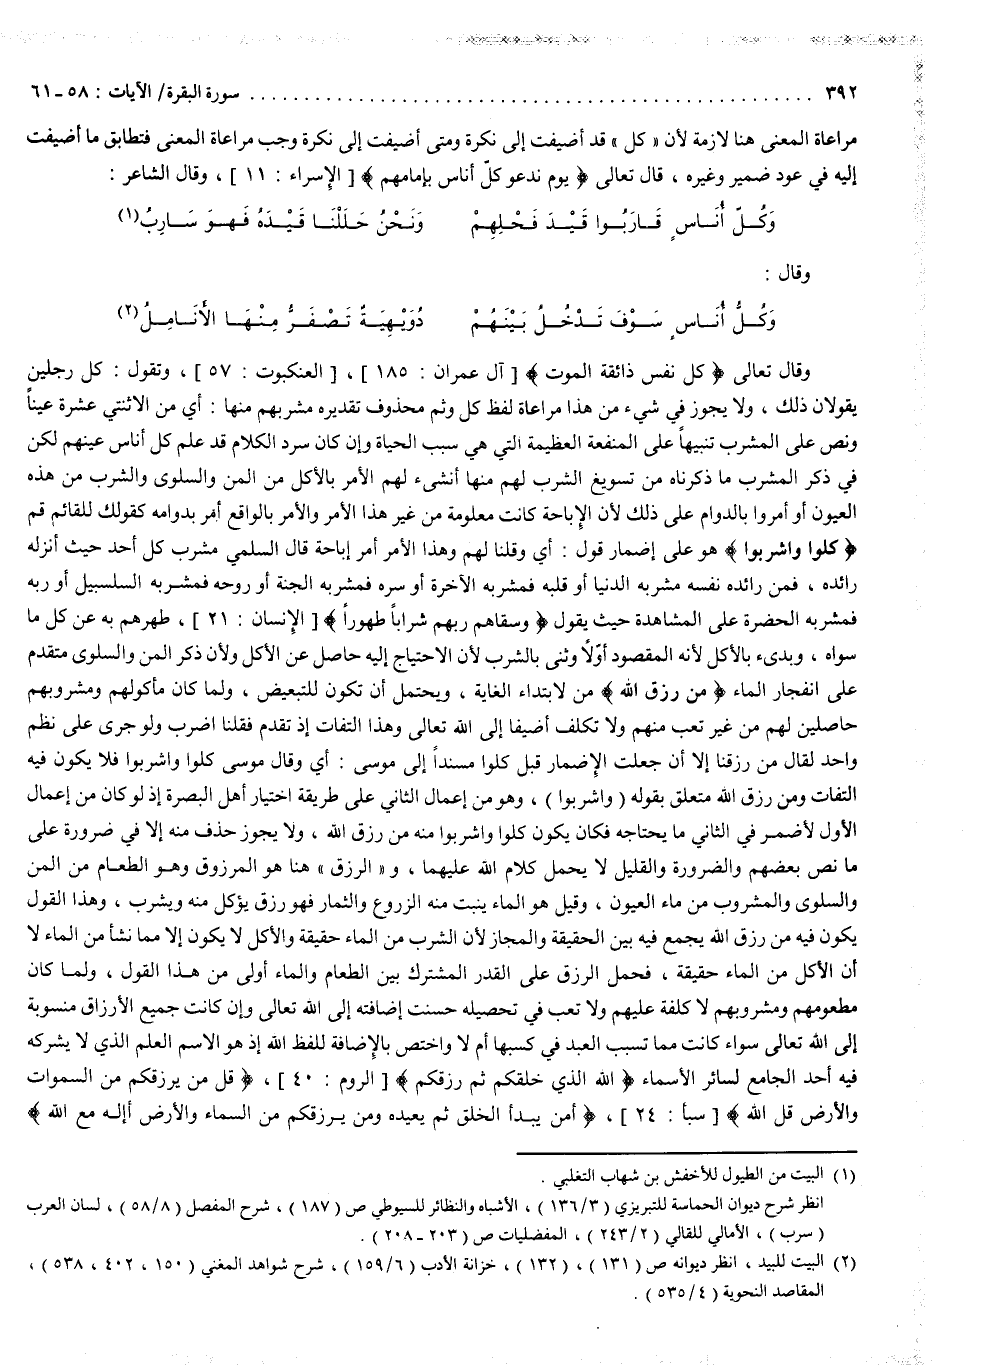 ٣٩٢ ........................................ سورة البقرة/ الآيات : ٥٨ ـ ٦١
مراعاة المعنى هنا لازمة لأن « كل » قد أضيفت إلى نكرة ومتى أضيفت إلى نكرة وجب مراعاة المعنى فتطابق ما أضيفت
إليه في عود ضمير وغيره ، قال تعالى ﴿ يوم ندعو كلّ أناس بإمامهم ﴾ [ الإسراء : ١١ ] ، وقال الشاعر :
وَكُـلّ أُنَـاسٍ قَـارَبُـوا قَيْـدَ فَحْلِهِمْ وَنَحْنُ حَلَلْنَا قَيْدَهُ فَهُوَ سَارِبُ(١)
وقال :
وَكُـلُّ أُنَـاسٍ سَـوْفَ تَـدْخُـلُ بَيْنَهُمْ دُوَيْهِيَةٌ تَصْفَرُّ مِنْهَا الأَنَامِلُ(٢)
وقال تعالى ﴿ كل نفس ذائقة الموت ﴾ [ آل عمران : ١٨٥ ] ، [ العنكبوت : ٥٧ ] ، وتقول : كل رجلين
يقولان ذلك ، ولا يجوز في شيء من هذا مراعاة لفظ كل وثم محذوف تقديره مشربهم منها : أي من الاثنتي عشرة عيناً
ونص على المشرب تنبيهاً على المنفعة العظيمة التي هي سبب الحياة وإن كان سرد الكلام قد علم كل أناس عينهم لكن
في ذكر المشرب ما ذكرناه من تسويغ الشرب لهم منها أنشىء لهم الأمر بالأكل من المن والسلوى والشرب من هذه
العيون أو أمروا بالدوام على ذلك لأن الإباحة كانت معلومة من غير هذا الأمر والأمر بالواقع أمر بدوامه كقولك للقائم قم
﴿ كلوا واشربوا ﴾ هو على إضمار قول : أي وقلنا لهم وهذا الأمر أمر إباحة قال السلمي مشرب كل أحد حيث أنزله
رائده ، فمن رائده نفسه مشربه الدنيا أو قلبه فمشربه الآخرة أو سره فمشربه الجنة أو روحه فمشربه السلسبيل أو ربه
فمشربه الحضرة على المشاهدة حيث يقول ﴿ وسقاهم ربهم شراباً طهوراً ﴾ [ الإنسان : ٢١ ] ، طهرهم به عن كل ما
سواه ، وبدىء بالأكل لأنه المقصود أوّلاً وثنى بالشرب لأن الاحتياج إليه حاصل عن الأكل ولأن ذكر المن والسلوى متقدم
على انفجار الماء ﴿ من رزق الله ﴾ من لابتداء الغاية ، ويحتمل أن تكون للتبعيض ، ولما كان مأكولهم ومشروبهم
حاصلين لهم من غير تعب منهم ولا تكلف أضيفا إلى الله تعالى وهذا التفات إذ تقدم فقلنا اضرب ولو جرى على نظم
واحد لقال من رزقنا إلا أن جعلت الإضمار قبل كلوا مسنداً إلى موسى : أي وقال موسى كلوا واشربوا فلا يكون فيه
التفات ومن رزق الله متعلق بقوله ( واشربوا ) ، وهو من إعمال الثاني على طريقة اختيار أهل البصرة إذ لو كان من إعمال
الأول لأضمر في الثاني ما يحتاجه فكان يكون كلوا واشربوا منه من رزق الله ، ولا يجوز حذف منه إلا في ضرورة على
ما نص بعضهم والضرورة والقليل لا يحمل كلام الله عليهما ، و« الرزق » هنا هو المرزوق وهو الطعام من المن
والسلوى والمشروب من ماء العيون ، وقيل هو الماء ينبت منه الزروع والثمار فهو رزق يؤكل منه ويشرب ، وهذا القول
يكون فيه من رزق الله يجمع فيه بين الحقيقة والمجاز لأن الشرب من الماء حقيقة والأكل لا يكون إلا مما نشأ من الماء لا
أن الأكل من الماء حقيقة ، فحمل الرزق على القدر المشترك بين الطعام والماء أولى من هذا القول ، ولما كان
مطعومهم ومشروبهم لا كلفة عليهم ولا تعب في تحصيله حسنت إضافته إلى الله تعالى وإن كانت جميع الأرزاق منسوبة
إلى الله تعالى سواء كانت مما تسبب العبد في كسبها أم لا واختص بالإضافة للفظ الله إذ هو الاسم العلم الذي لا يشركه
فيه أحد الجامع لسائر الأسماء ﴿ الله الذي خلقكم ثم رزقكم ﴾ [ الروم : ٤٠ ] ، ﴿ قل من يرزقكم من السموات
والأرض قل الله ﴾ [ سبأ : ٢٤ ] ، ﴿ أمن يبدأ الخلق ثم يعيده ومن يرزقكم من السماء والأرض أإله مع الله ﴾
(١) البيت من الطيول للأخفش بن شهاب التغلبي .
انظر شرح ديوان الحماسة للتبريزي ( ١٣٦/٣ ) ، الأشباه والنظائر للسيوطي ص ( ١٨٧ ) ، شرح المفصل ( ٥٨/٨ ) ، لسان العرب
( سرب ) ، الأمالي للقالي ( ٢٤٣/٢ ) ، المفضليات ص ( ٢٠٣ ـ ٢٠٨ ) .
(٢) البيت للبيد ، انظر ديوانه ص ( ١٣١ ) ، ( ١٣٢ ) ، خزانة الأدب ( ١٥٩/٦ ) ، شرح شواهد المغني ( ١٥٠ ، ٤٠٢ ، ٥٣٨ ) ،
المقاصد النحوية ( ٥٣٥/٤ ) .